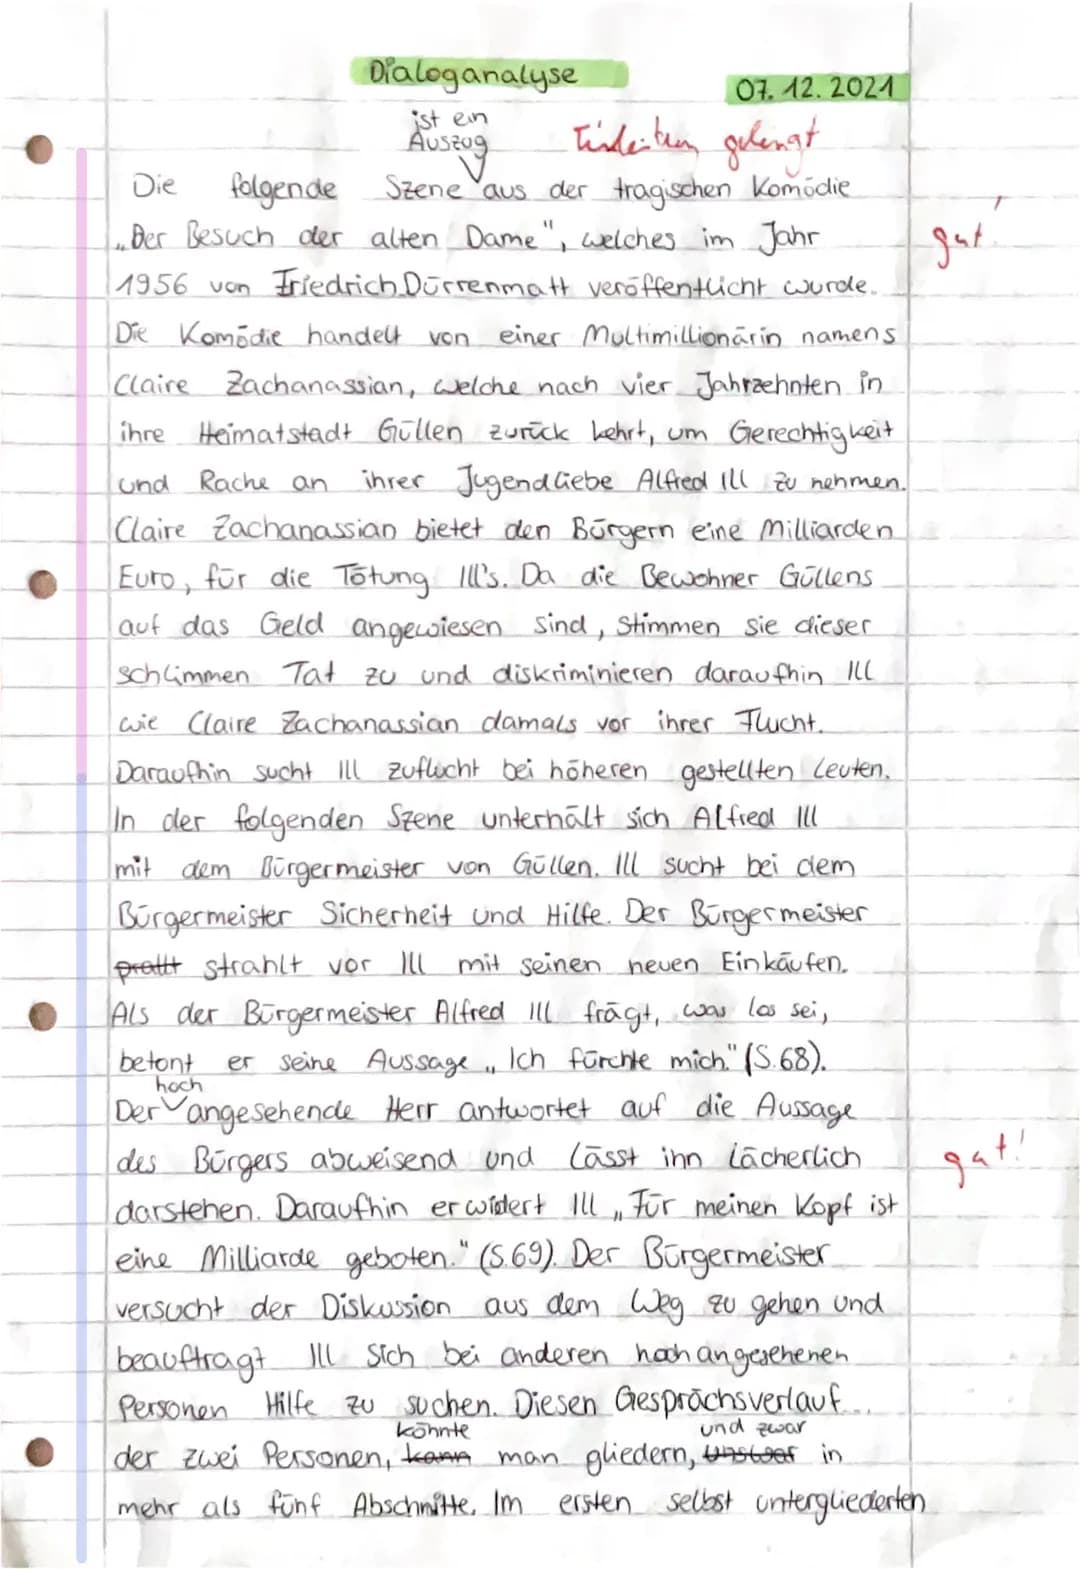 Dialoganalyse
07. 12. 2021
ist ein
Auszug
Einleitung gelingt
Die folgende Szene aus der tragischen Komödie
„Der Besuch der alten Dame", welches im Jahr
gut!
1956 von Friedrich Dürrenmatt veröffentlicht wurde.
Die Komödie handelt von einer Multimillionärin namens
Claire Zachanassian, welche nach vier Jahrzehnten in
ihre Heimatstadt Güllen zurück kehrt, um Gerechtigkeit
und Rache an ihrer Jugendliebe Alfred Ill zu nehmen.
Claire Zachanassian bietet den Bürgern eine Milliarden
Euro, für die Tötung Ill's. Da die Bewohner Güllens
auf das Geld angewiesen sind, stimmen sie dieser
schlimmen Tat zu und diskriminieren daraufhin Ill
wie Claire Zachanassian damals vor ihrer Flucht.
Daraufhin sucht Ill zuflucht bei höheren gestellten Leuten.
In der folgenden Szene unterhält sich Alfred Ill
mit dem Bürgermeister von Güllen. Ill sucht bei dem
Bürgermeister Sicherheit und Hilfe. Der Bürgermeister
prallt strahlt vor Ill mit seinen neuen Einkäufen.
Als der Bürgermeister Alfred Ill frägt, was los sei,
betont er seine Aussage „Ich fürchte mich." (S.68).
hoch
Der angesehende Herr antwortet auf die Aussage
des Bürgers abweisend und lässt ihn lächerlich
gut!
darstehen. Daraufhin erwidert Ill „Für meinen Kopf ist
eine Milliarde geboten." (S.69). Der Bürgermeister
versucht der Diskussion aus dem Weg zu gehen und
beauftragt Ill sich bei anderen hochangesehenen
Personen Hilfe zu suchen. Diesen Gesprächsverlauf
könnte und zwar
der zwei Personen, kann man gliedern, in
mehr als fünf Abschnitte. Im ersten selbst untergliederten